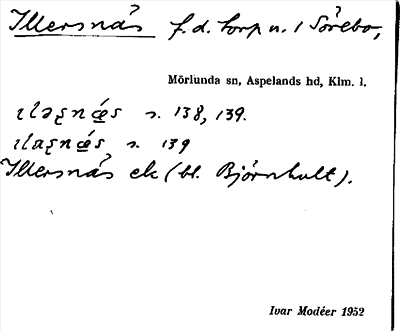 Illersnäs f.d. torp n. i Sörebo,
Mörlunda sn, Aspelands hd, Klm. l.
s. 138, 139.
s. 139
Illersnäs ek (bl. Björnhult).
Ivar Modéer 1952